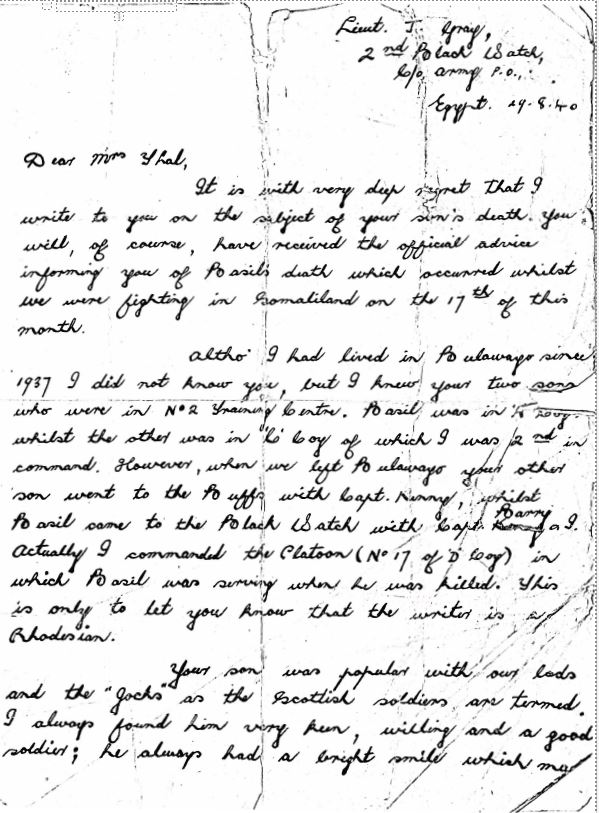 Lieut. J. Gray,
2nd Black Watch,
C/o, Army P.O.,
Egypt. 29.8.40
Dear Mrs Thal,
It is with very deep regret that I
write to you on the subject of your son's death. You
will, of course, have received the official advice
informing you of Basils death which occurred whilst
we were fighting in Somaliland on the 17th of this
month.
Altho' I had lived in Bulawayo since
1937 I did not know you, but I knew your two sons
who were in No 2 Training Centre. Basil was in Coy.
whilst the other was in 'C' Coy of which I was 2nd in
command. However, when we left Bulawayo your other
son went to the Buffs with Capt. Kenny, whilst
Basil came to the Black Watch with Capt. Barry & I.
Actually I commanded the Platoon (No 17 of D Coy) in
which Basil was serving when he was killed. This
is only to let you know that the writer is a
Rhodesian.
Your son was popular with our lads
and the "Jocks" as the Scottish soldiers are termed.
I always found him very keen, willing and a good
soldier; he always had a bright smile which